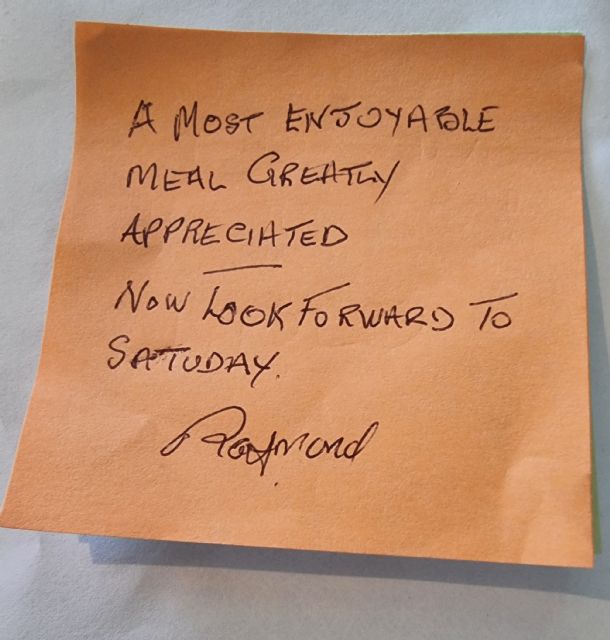 A MOST ENJOYABLE
MEAL GREATLY
APPRECIATED
NOW LOOK FORWARD TO
SATUDAY.
Raymond